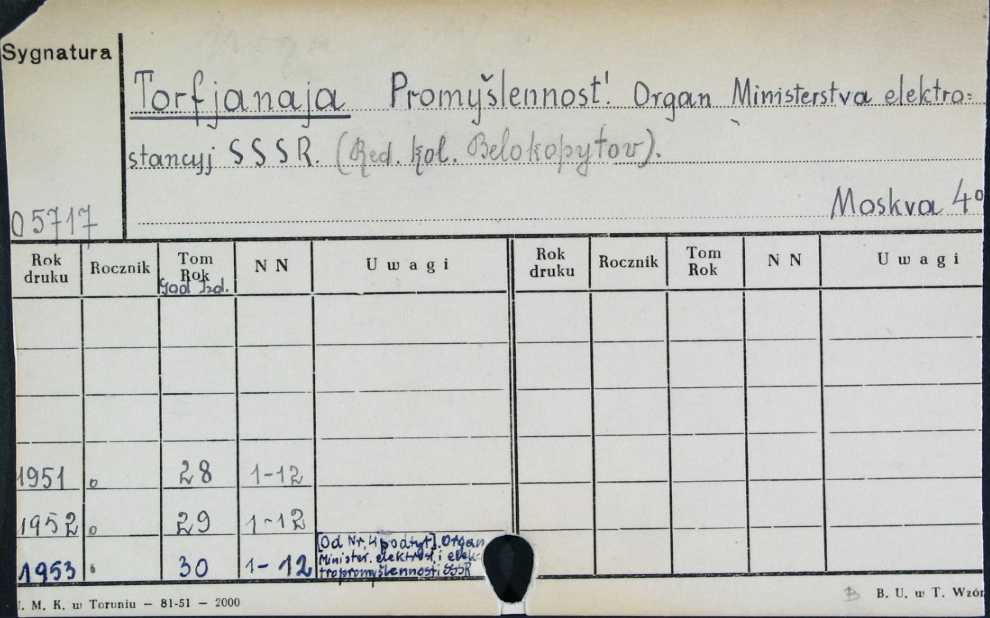 Sygnatura
Torfjanaja Promyšlennost'. Organ Ministerstva elektro=
stancyj SSSR. (Red. kol. Belokopytov).
Moskva 4°
05717
Rok druku Rocznik Tom Rok God izd. N N Uwagi Rok druku Rocznik Tom Rok N N Uwagi
1951 28 1-12
1952 29 1-12
1953 30 1-12 [Od Nr. 4 podtyt]. Organ
Minister. elektrost. i elek-
tropromyšlennosti SSSR
. M. K. w Toruniu — 81-51 — 2000
B. U. w T. Wzór